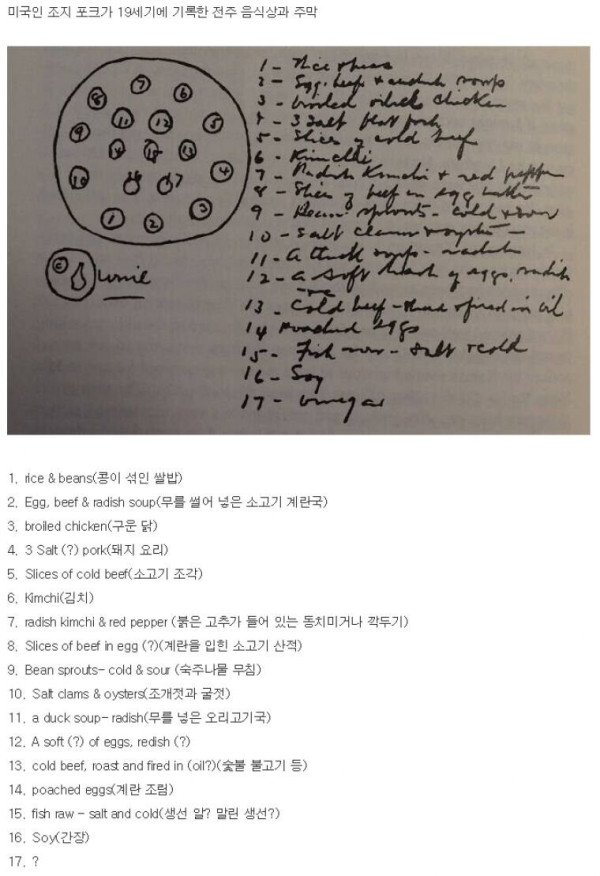 미국인 조지 포크가 19세기에 기록한 전주 음식상과 주막
7
8 6
11 12 5
9
13
10 4
16 17
1 2 3
wine
1 - Rice & beans
2 - Egg, beef & radish soup
3 - broiled chicken
4 - 3 Salt pork
5 - Slices of cold beef
6 - Kimchi
7 - Radish Kimchi & red pepper
8 - Slices of beef in egg batter
9 - Bean sprouts - cold & sour
10 - Salt clams & oysters -
11 - A soup - radish
12 - A soft hash of eggs, radish
13 - Cold beef - fried in oil
14 Poached eggs
15 - Fish - salt & cold
16 - Soy
17 - Vinegar
1. rice & beans(콩이 섞인 쌀밥)
2. Egg, beef & radish soup(무를 썰어 넣은 소고기 계란국)
3. broiled chicken(구운 닭)
4. 3 Salt (?) pork(돼지 요리)
5. Slices of cold beef(소고기 조각)
6. Kimchi(김치)
7. radish kimchi & red pepper (붉은 고추가 들어 있는 동치미거나 깍두기)
8. Slices of beef in egg (?)(계란을 입힌 소고기 산적)
9. Bean sprouts- cold & sour (숙주나물 무침)
10. Salt clams & oysters(조개젓과 굴젓)
11. a duck soup- radish(무를 넣은 오리고기국)
12. A soft (?) of eggs, redish (?)
13. cold beef, roast and fired in (oil?)(숯불 불고기 등)
14. poached eggs(계란 조림)
15. fish raw - salt and cold(생선 알? 말린 생선?)
16. Soy(간장)
17. ?